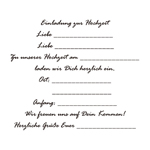 Einladung zur Hochzeit
Liebe _______________
Liebe _______________
Zu unserer Hochzeit am _______________
laden wir Dich herzlich ein.
Ort: _______________
_______________
Anfang: _______________
Wir freuen uns auf Dein Kommen!
Herzliche Grüße Euer _______________